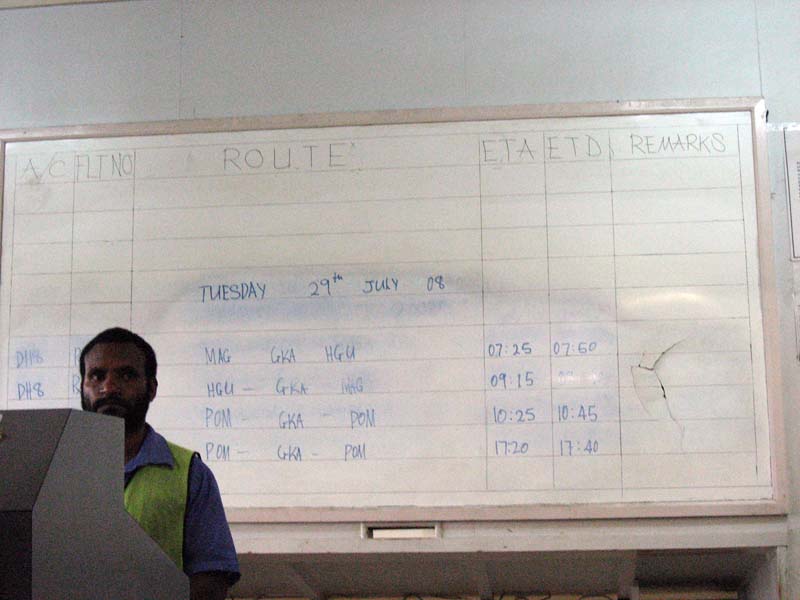 A/C FLT NO ROUTE ETA ETD REMARKS
TUESDAY 29th JULY 08
DH8 MAG GKA HGU 07:25 07:50
DH8 HGU - GKA MAG 09:15
POM - GKA - POM 10:25 10:45
POM - GKA - POM 17:20 17:40